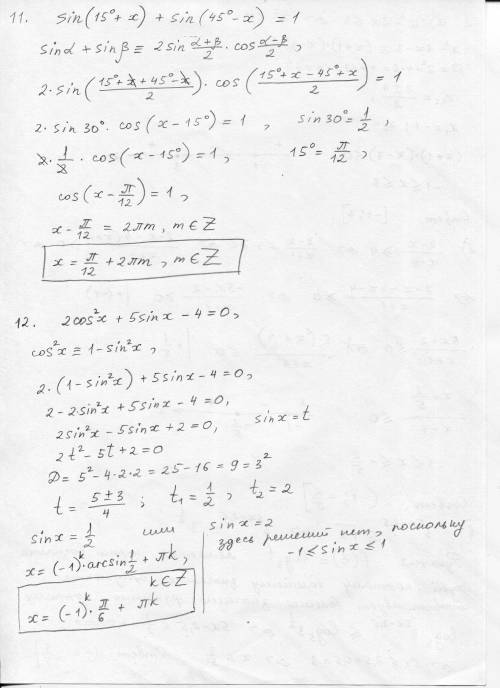 11. sin(15°+x) + sin(45°-x) = 1
sinα + sinβ ≡ 2sin (α+β)/2 · cos (α-β)/2,
2·sin((15°+x+45°-x)/2) · cos((15°+x-45°+x)/2) = 1
2·sin30°·cos(x-15°) = 1, sin30° = 1/2,
2·1/2·cos(x-15°) = 1, 15° = π/12,
cos(x-π/12) = 1,
x-π/12 = 2πm, m∈Z
x = π/12 + 2πm, m∈Z
12. 2cos²x + 5sinx - 4 = 0,
cos²x ≡ 1-sin²x,
2·(1-sin²x) + 5sinx - 4 = 0,
2-2sin²x + 5sinx - 4 = 0,
2sin²x - 5sinx + 2 = 0, sinx = t
2t² - 5t + 2 = 0
D = 5² - 4·2·2 = 25-16 = 9 = 3²
t = (5±3)/4; t₁ = 1/2, t₂ = 2
sinx = 1/2 или sinx = 2
x = (-1)ᵏ·arcsin 1/2 + πk, здесь решений нет, поскольку
k∈Z -1 ≤ sinx ≤ 1
x = (-1)ᵏ·π/6 + πk